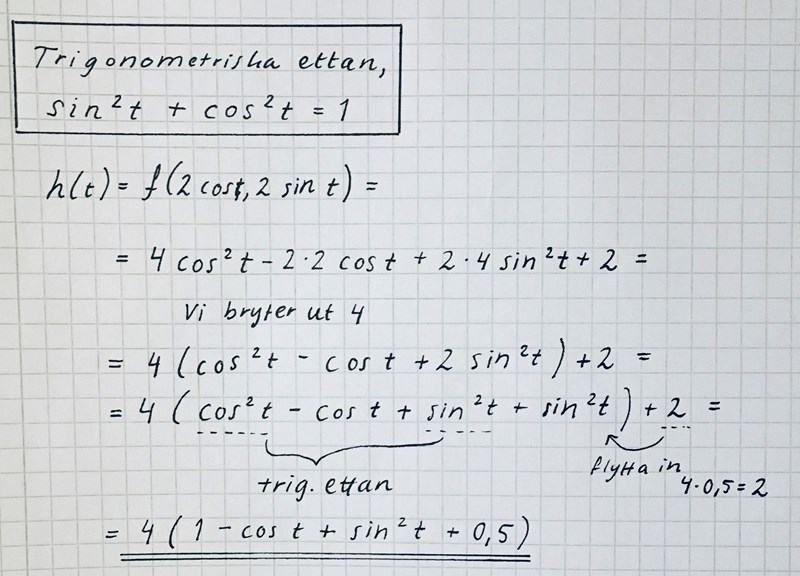 Trigonometriska ettan,
sin²t + cos²t = 1
h(t) = f(2 cost, 2 sin t) =
= 4 cos²t - 2·2 cos t + 2·4 sin²t + 2 =
Vi bryter ut 4
= 4 (cos²t - cos t + 2 sin²t) + 2 =
= 4 (cos²t - cos t + sin²t + sin²t) + 2 =
trig. ettan
flytta in
4·0,5 = 2
= 4 (1 - cos t + sin²t + 0,5)